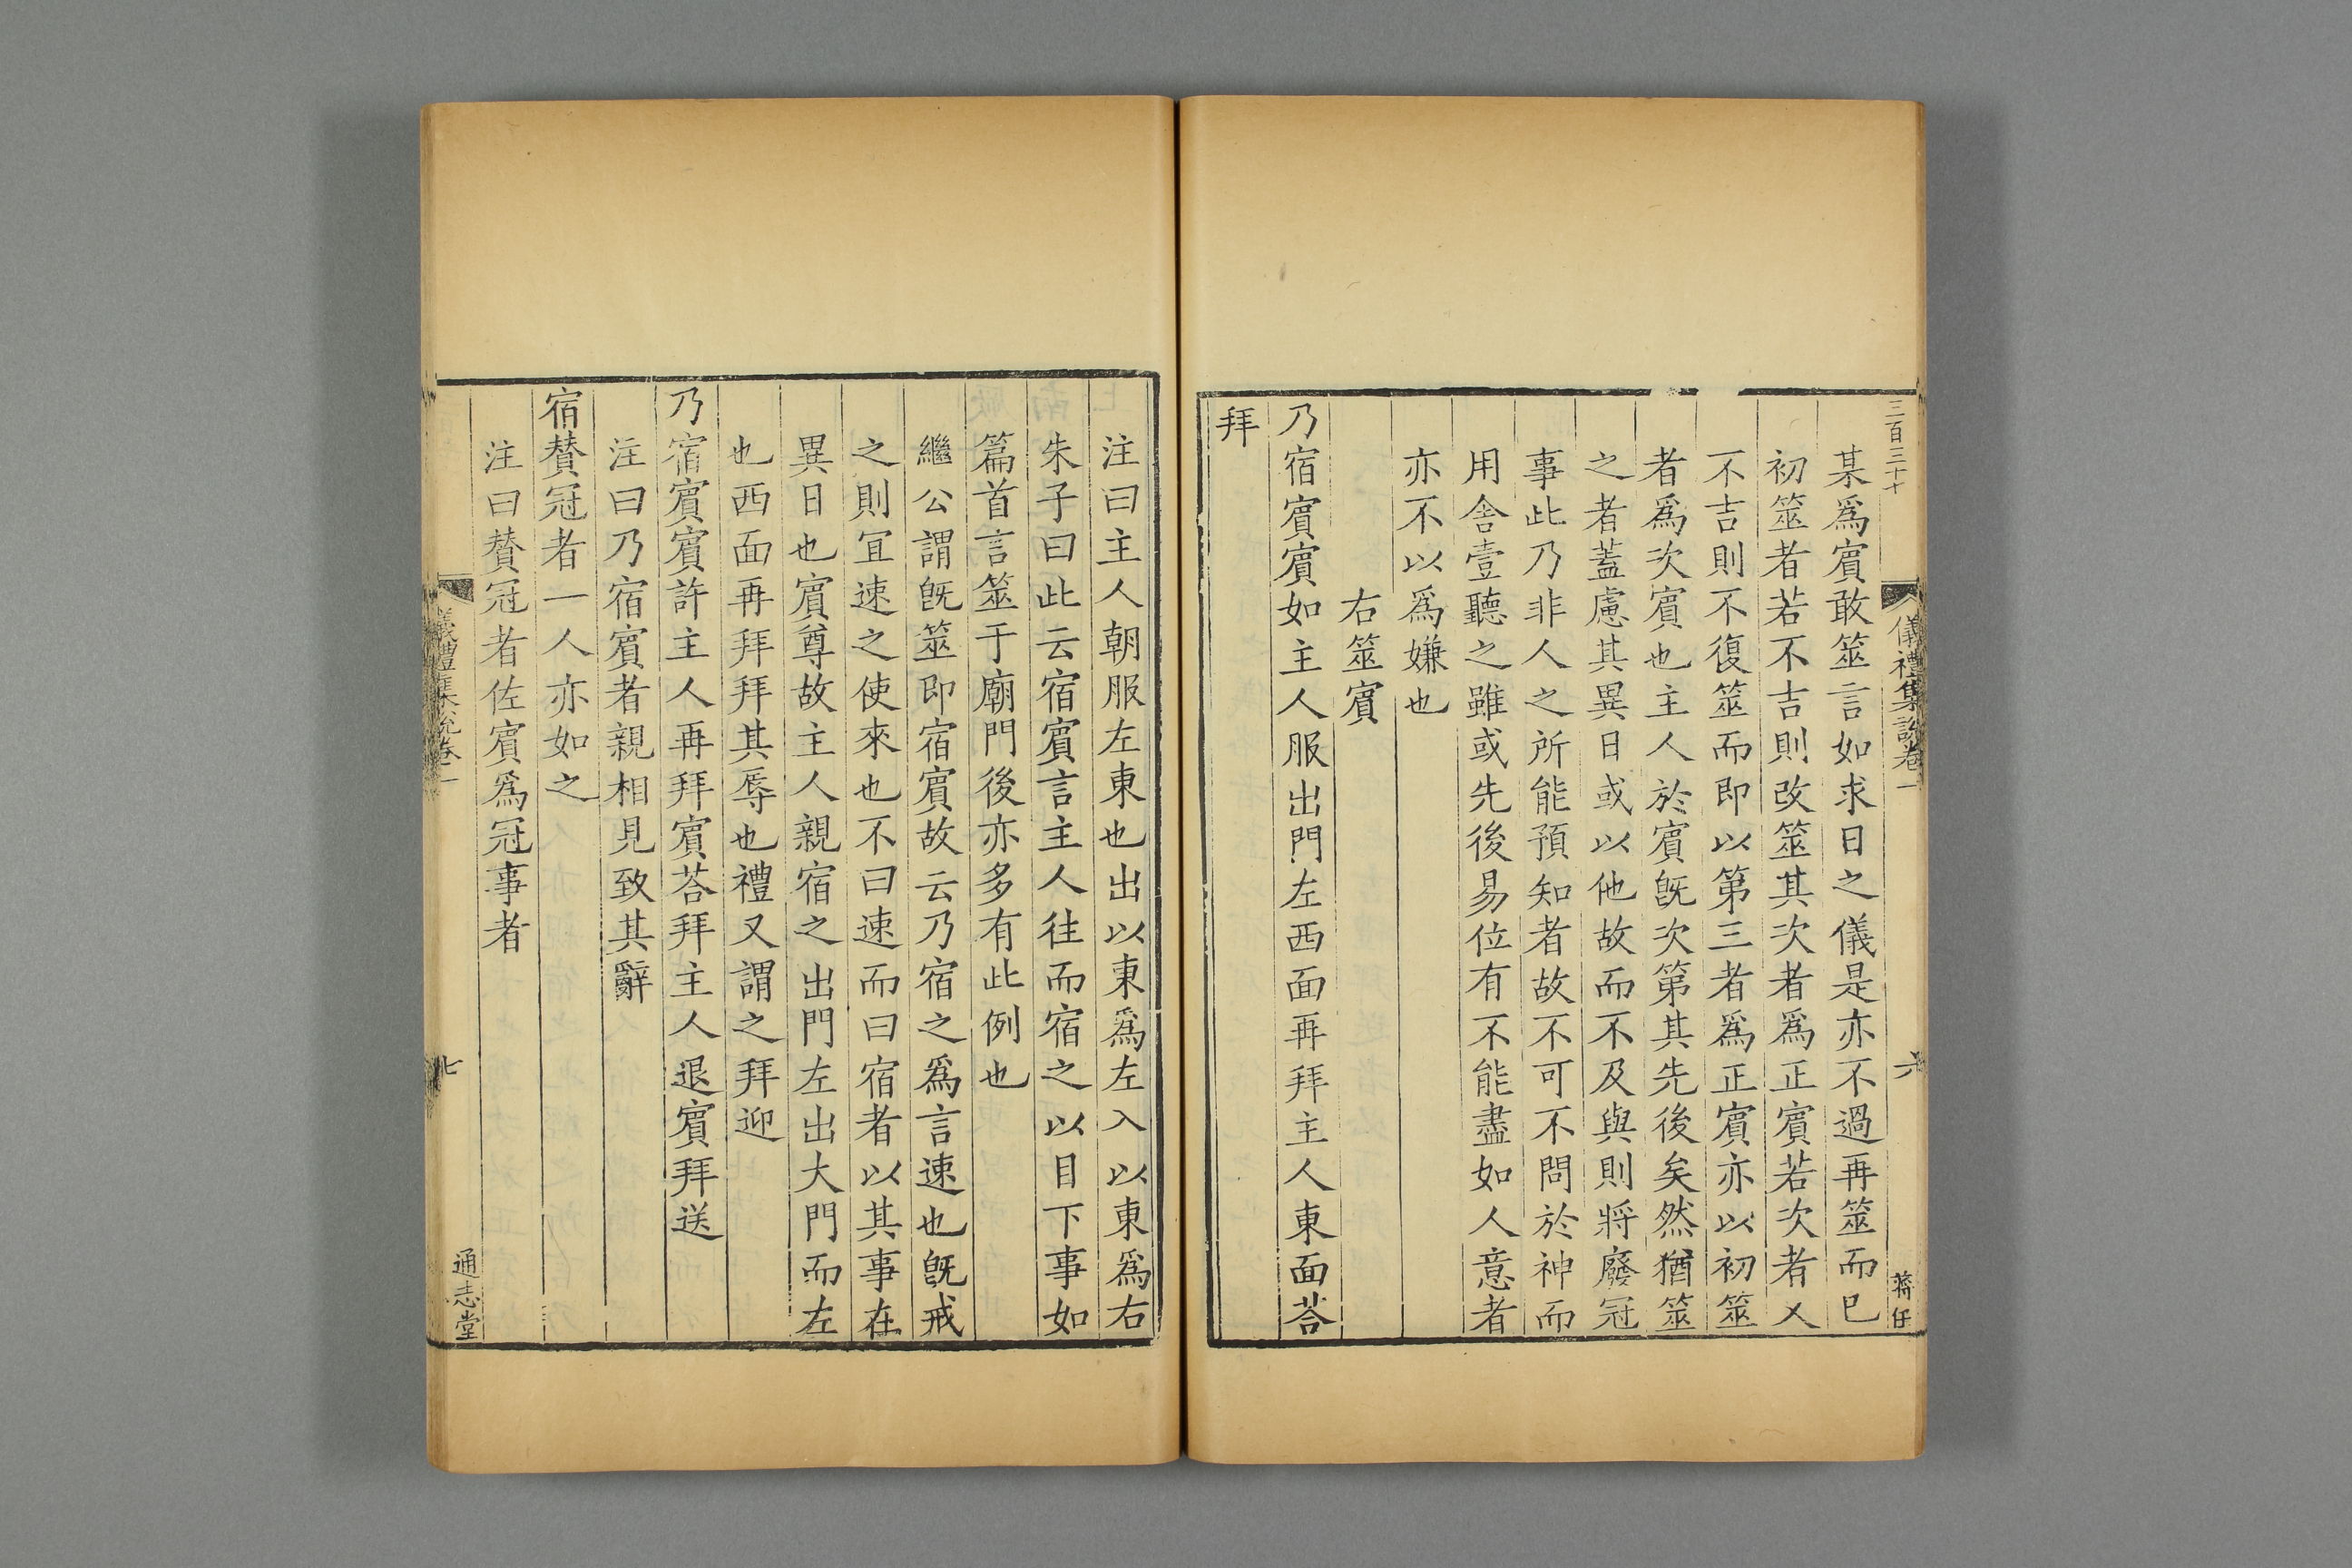 三百三十
儀禮集說卷一
六
蔣任
某爲賔敢筮言如求日之儀是亦不過再筮而已
初筮者若不吉則改筮其次者爲正賔若次者又
不吉則不復筮而即以第三者爲正賔亦以初筮
者爲次賔也主人於賔旣次第其先後矣然猶筮
之者蓋慮其異日或以他故而不及與則將廢冠
事此乃非人之所能預知者故不可不問於神而
用舍壹聽之雖或先後易位有不能盡如人意者
亦不以爲嫌也
右筮賔
乃宿賔賔如主人服出門左西面再拜主人東面荅
拜
注曰主人朝服左東也出以東爲左入以東爲右
朱子曰此云宿賔言主人往而宿之以目下事如
篇首言筮于廟門後亦多有此例也
繼公謂旣筮即宿賔故云乃宿之爲言速也旣戒
之則宜速之使來也不曰速而曰宿者以其事在
異日也賔尊故主人親宿之出門左出大門而左
也西面再拜拜其辱也禮又謂之拜迎
乃宿賔賔許主人再拜賔荅拜主人退賔拜送
注曰乃宿賔者親相見致其辭
宿贊冠者一人亦如之
注曰贊冠者佐賔爲冠事者
儀禮集說卷一
七
通志堂